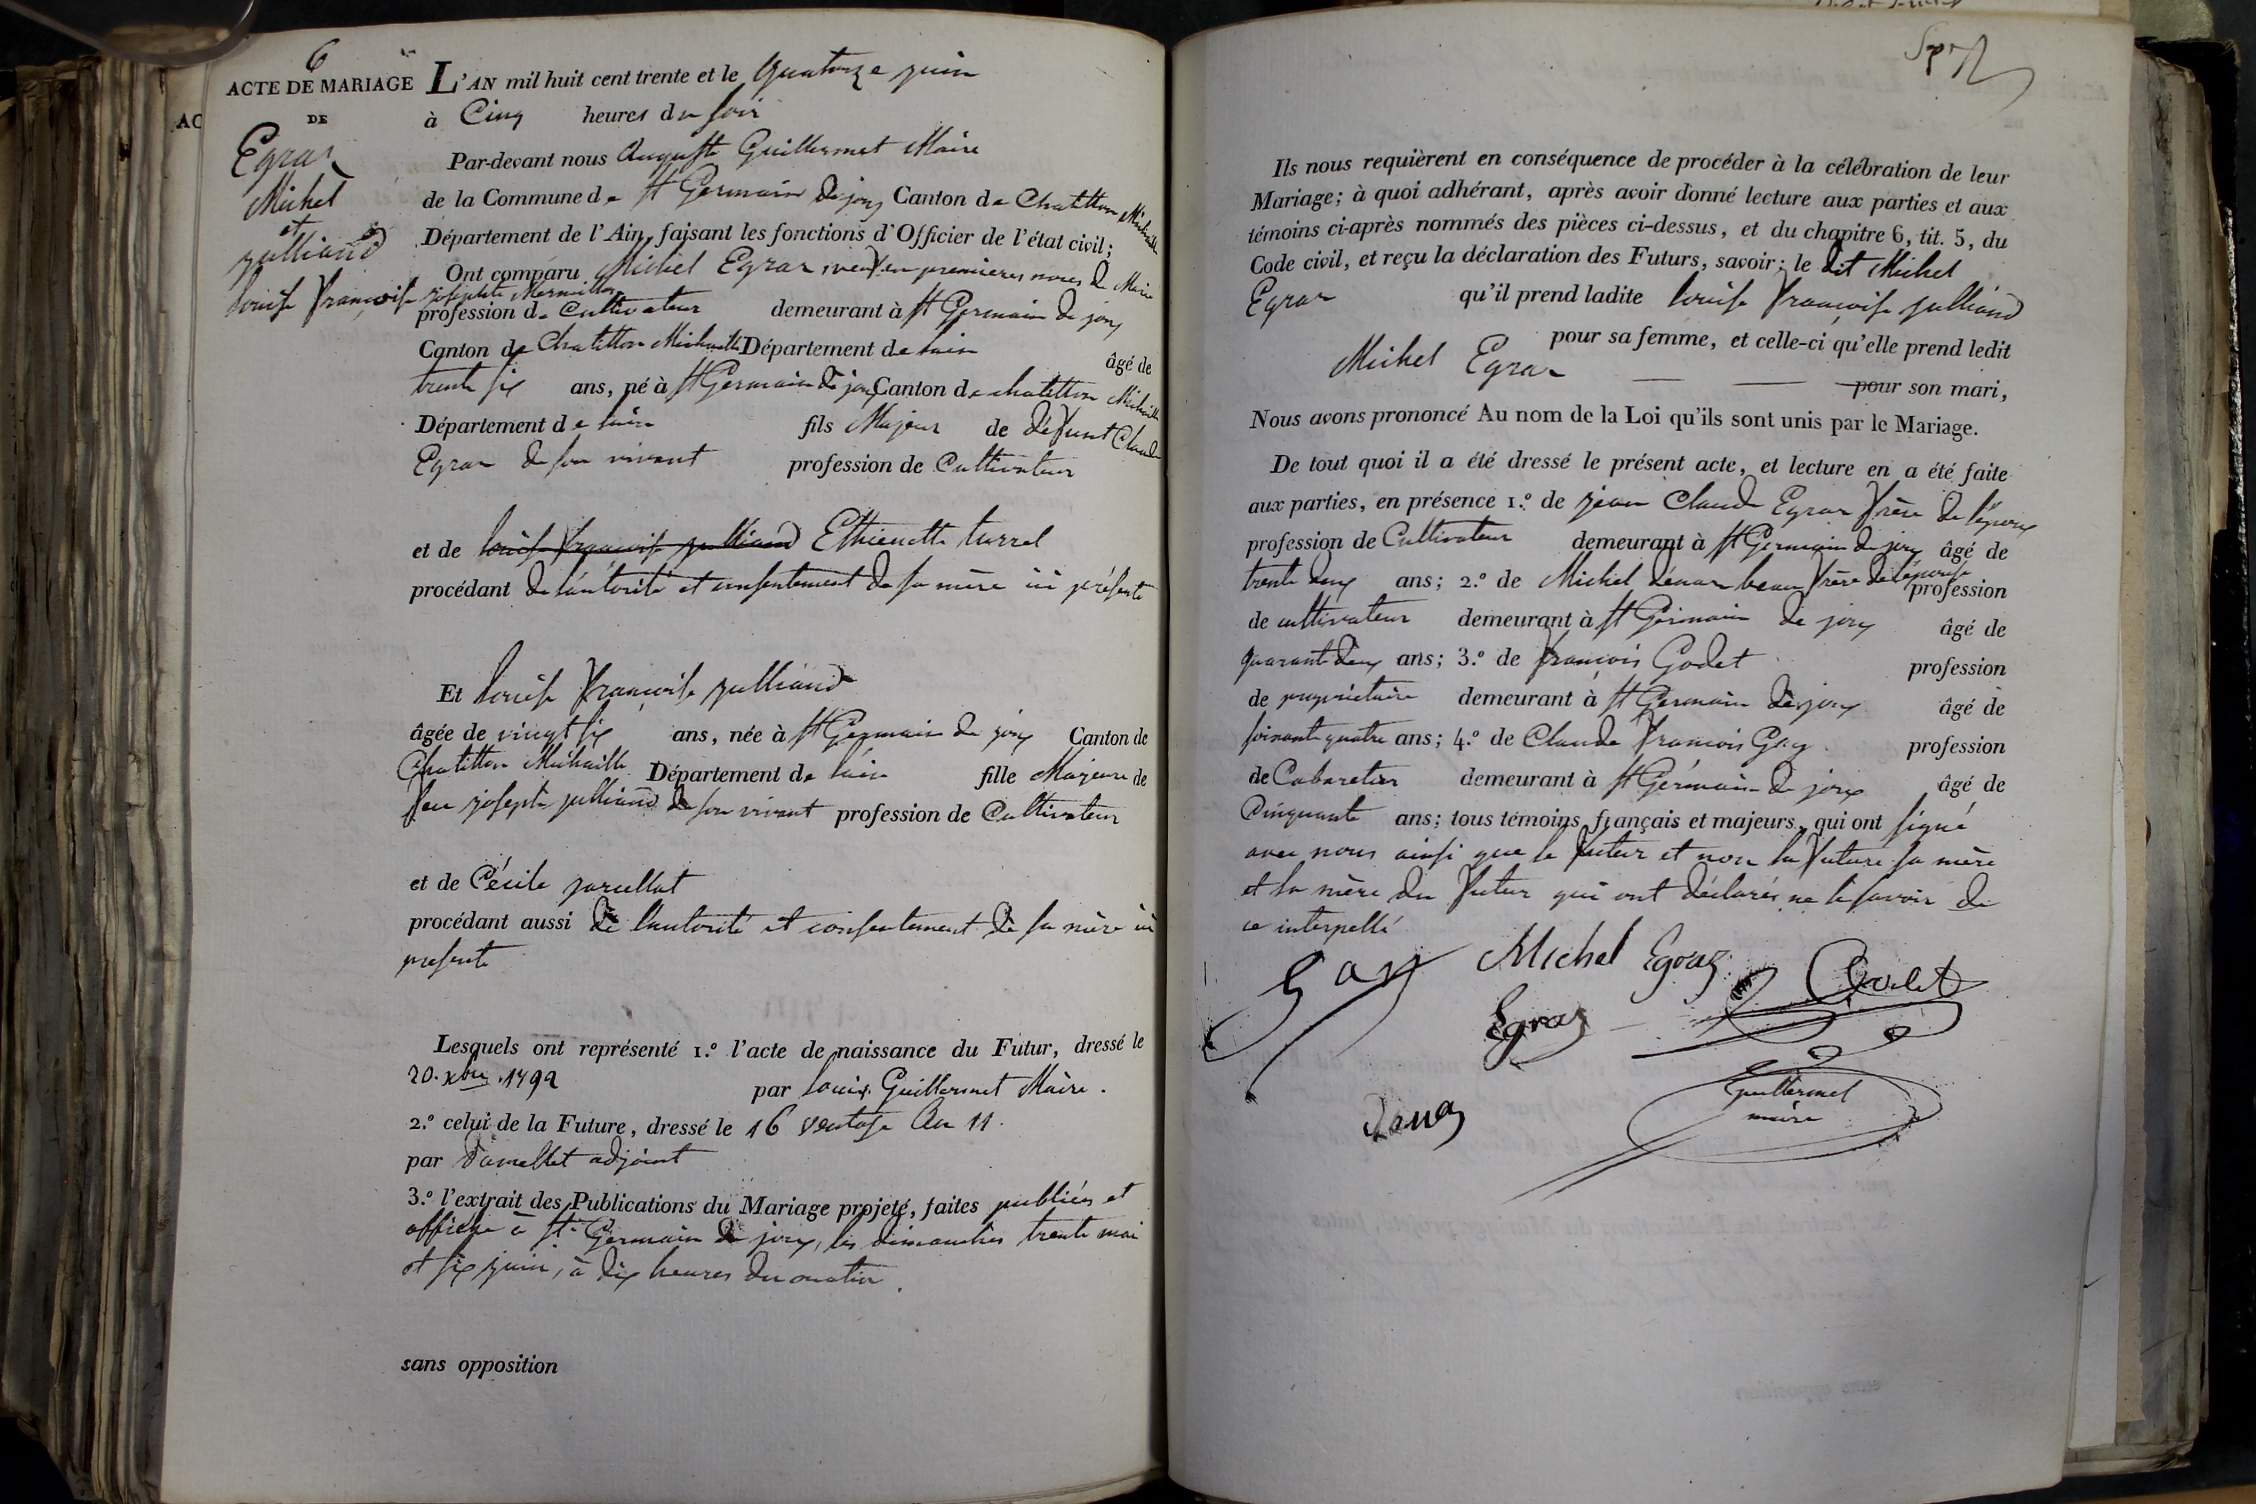 6
ACTE DE MARIAGE
DE
Egraz
Michel
et
julliand
louise françoise
L'AN mil huit cent trente et le quatorze juin
à Cinq heures du soir
Par-devant nous Auguste Guillermet Maire
de la Commune de St Germain de joux Canton de Chatillon Michaille
Département de l'Ain, faisant les fonctions d'Officier de l'état civil;
Ont comparu Michel Egraz, veuf en premieres noces de Marie
josephte Mermillon
profession de Cultivateur demeurant à St Germain de joux
Canton de Chatillon Michaille Département de lain âgé de
trente six ans, né à St Germain de joux Canton de chatillon Michaille
Département de lain fils Majeur de défunt Claude
Egraz de son vivant profession de Cultivateur
et de louise françoise julliand Ethienette turrel
procédant de lautorité et consentement de sa mère ici présente
Et louise françoise julliand
âgée de vingt six ans, née à St Germain de joux Canton de
Chatillon Michaille Département de lain fille Majeure de
feu joseph julliand de son vivant profession de Cultivateur
et de Cécile
procédant aussi de lautorité et consentement de sa mère ici
présente
Lesquels ont représenté 1.º l'acte de naissance du Futur, dressé le
20. xbre. 1792 par louis Guillermet Maire.
2.º celui de la Future, dressé le 16 ventose An 11.
par adjoint
3.º l'extrait des Publications du Mariage projeté, faites publiées et
affiche à St Germain de joux, les dimanches trente mai
et six juin, à dix heures du matin.
sans opposition
Ils nous requièrent en conséquence de procéder à la célébration de leur
Mariage; à quoi adhérant, après avoir donné lecture aux parties et aux
témoins ci-après nommés des pièces ci-dessus, et du chapitre 6, tit. 5, du
Code civil, et reçu la déclaration des Futurs, savoir; le dit Michel
Egraz qu'il prend ladite louise françoise julliand
pour sa femme, et celle-ci qu'elle prend ledit
Michel Egraz pour son mari,
Nous avons prononcé Au nom de la Loi qu'ils sont unis par le Mariage.
De tout quoi il a été dressé le présent acte, et lecture en a été faite
aux parties, en présence 1.º de jean Claude Egraz frère de l'époux
profession de Cultivateur demeurant à St Germain de joux âgé de
trente deux ans; 2.º de Michel beau frère de l'épouse profession
de cultivateur demeurant à St Germain de joux âgé de
quarante deux ans; 3.º de françois Godet profession
de propriétaire demeurant à St Germain de joux âgé de
soixante quatre ans; 4.º de Claude françois Gay profession
de Cabaretier demeurant à St Germain de joux âgé de
Cinquante ans; tous témoins français et majeurs, qui ont signé
avec nous ainsi que le futur et non la future sa mère
et la mère du futur qui ont déclarés ne le savoir de
ce interpellé
Gay Michel Egraz Godet
Egraz
Guillermet
maire